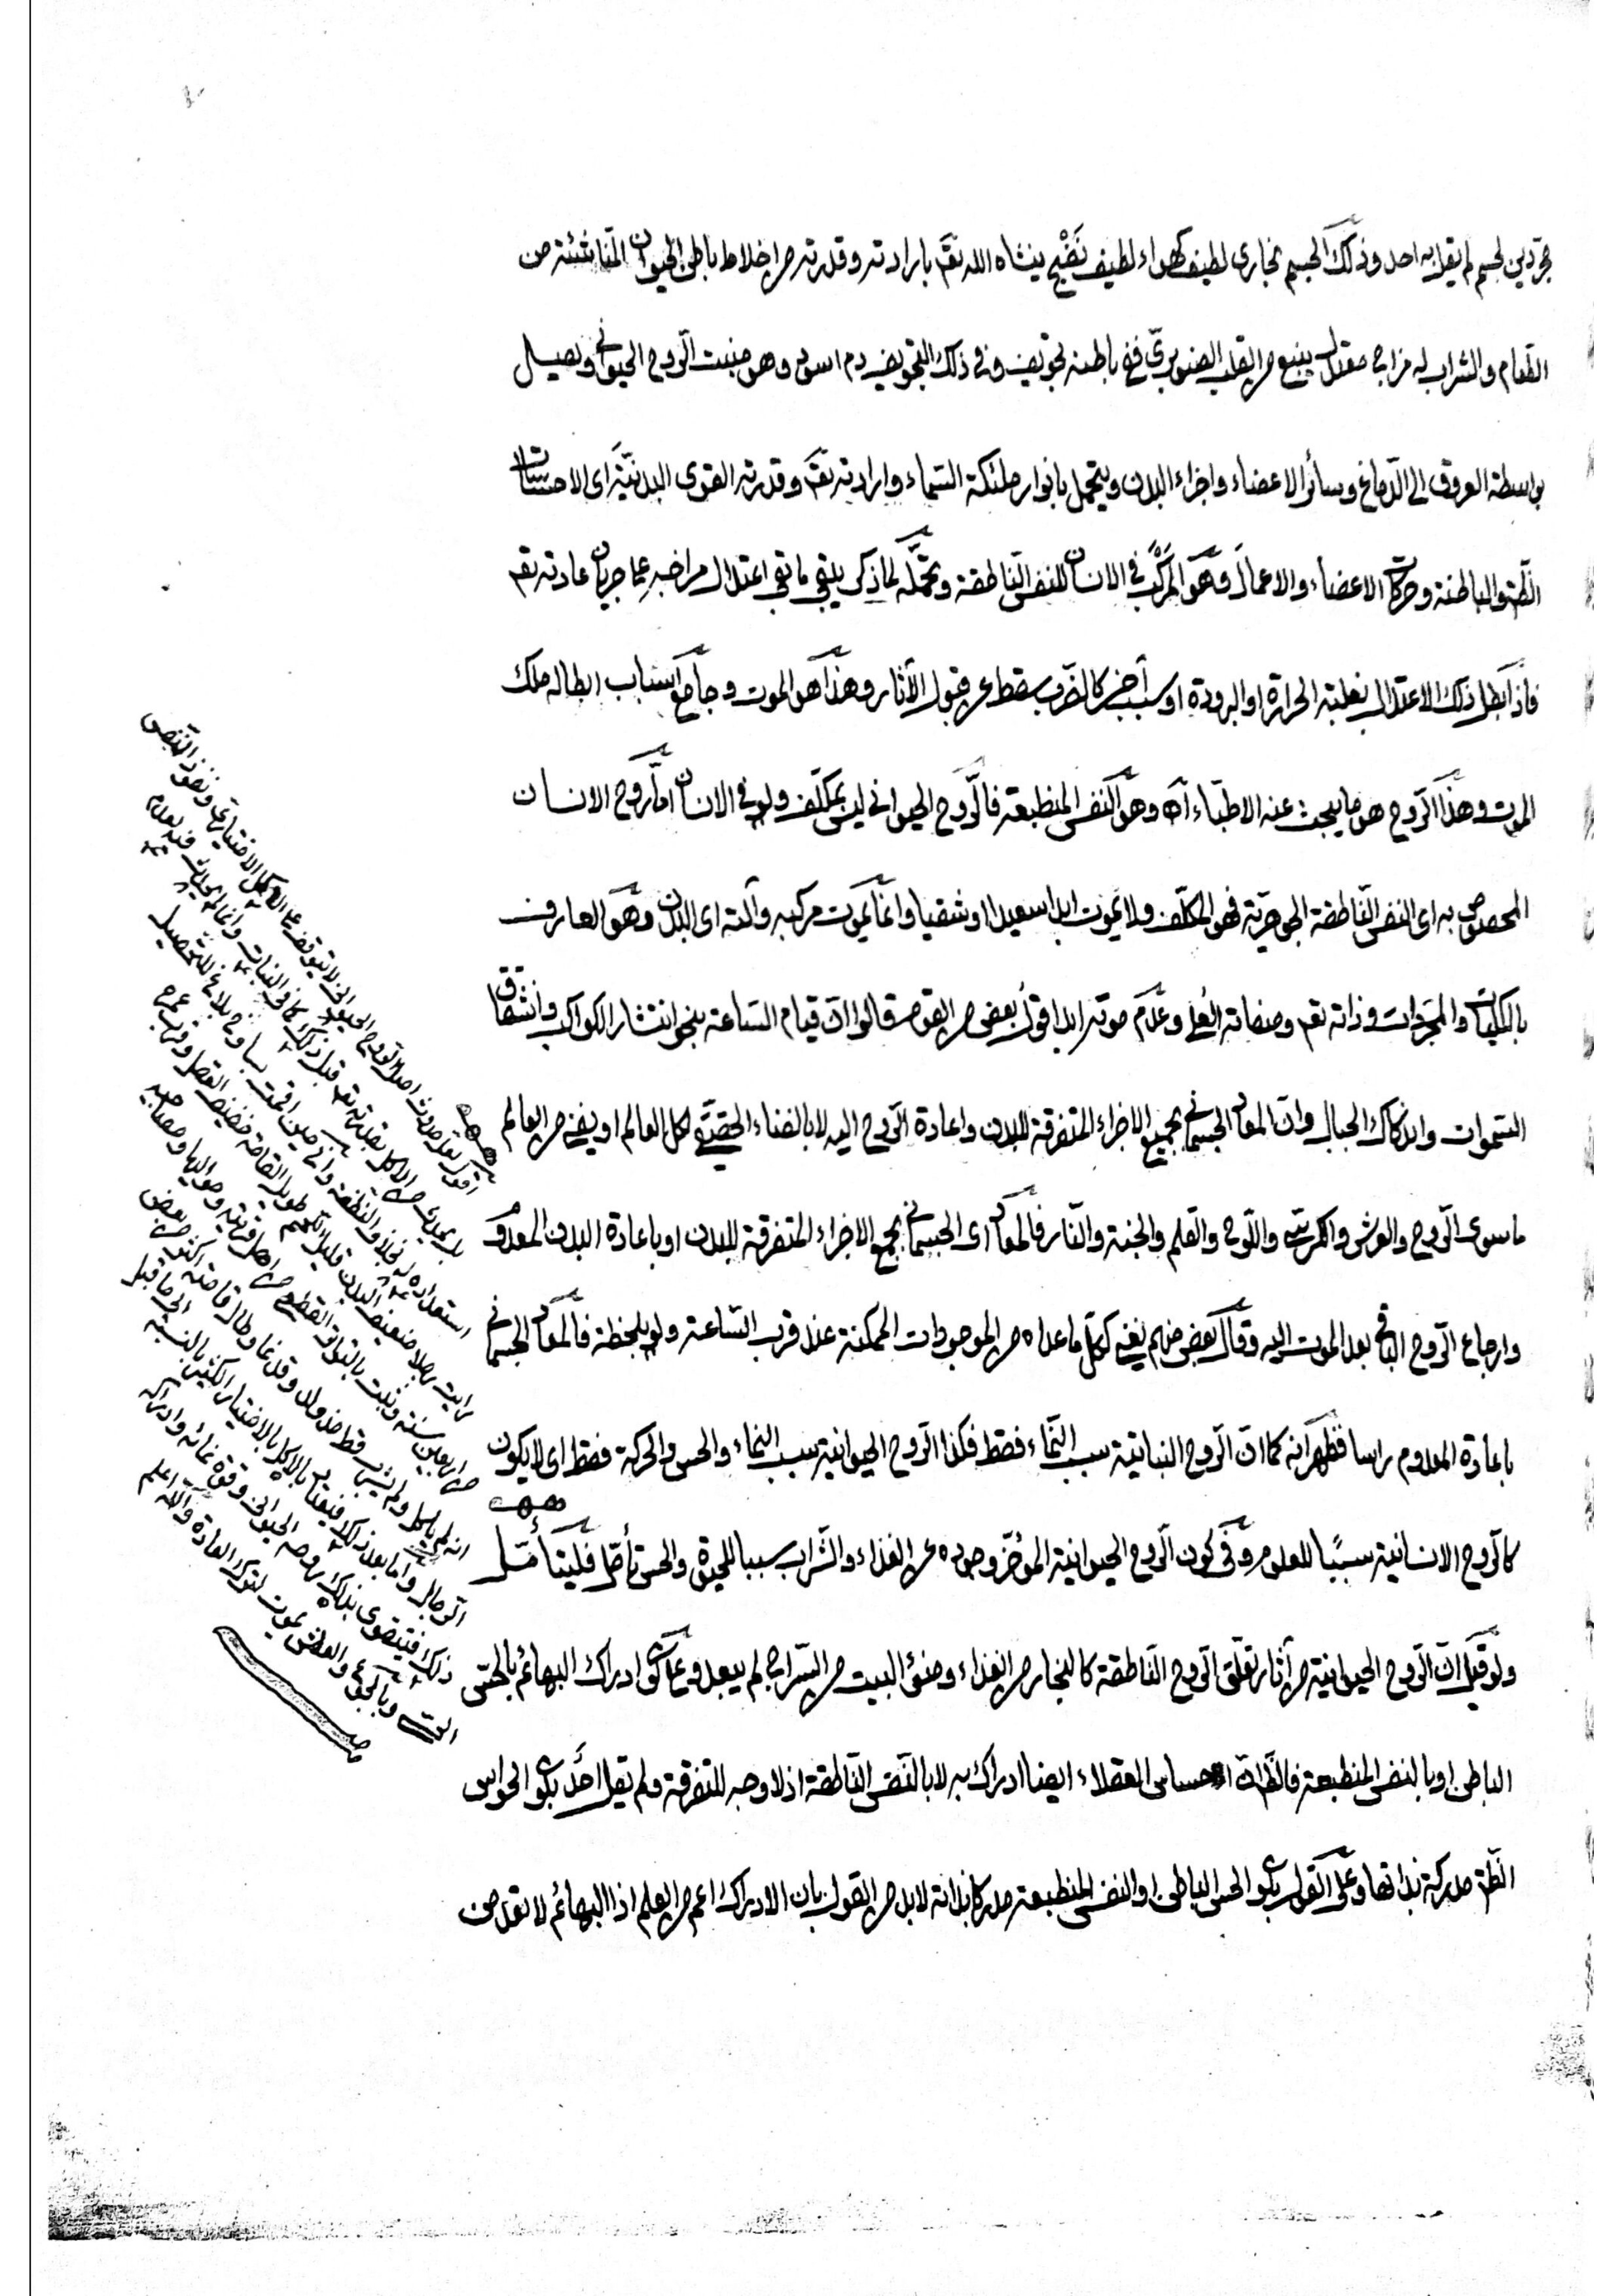 مجردين لجسم لم يقل به احد وذلك الجسم بخارى لطيف كهواء لطيف نضيج ينشاه الله تقم بارادته وقدرته من اخلاط باطن الحيوان الناشئة من
الطعام والشراب له مزاج معتدل ينبع من القلب الصنوبرى ففى باطنه تجويف وفى ذلك التجويف دم اسود وهو منبت الروح الحيوانى ويصل
بواسطة العروق الى الدماغ وسائر الاعضاء واجزاء البدن ويتحمل بانوار ملئكة السماء وارادته تقم وقدرته القوى البدنية اى الاحساسات
الظة والباطنة وحركات الاعضاء والاعمال وهو المركب فى الانسان للنفس الناطقة وتحمله لما ذكر يبقى ما بقى اعتدال مزاجه عما جريان عادته تقم
فاذا بطل ذلك الاعتدال بغلبة الحرارة او البرودة او سبب آخر كالضرب سقط عن قبول الآثار وهذا هو الموت وجامع اسباب ابطاله ملك
الموت وهذا الروح هو ما يبحث عنه الاطباء آه وهو النفس المنطبعة فالروح الحيوانى ليس بمكلف ولو فى الانسان اما روح الانسان
المخصوص به اى النفس الناطقة الجوهرية فهو المكلف ولا يموت ابدا سعيدا او شقيا وانما يموت مركبه وآلته اى البدن وهو العارف
بالكليات والمجردات وذاته تقم وصفاته العلى وعدم موته ابدا قول بعض من القوم قالوا ان قيام الساعة بنحو انتشار الكواكب وانشقاق
السموات واندكاك الجبال وان المعاد الجسمانى بجميع الاجزاء المتفرقة للبدن واعادة الروح اليه لا بالفناء الحقيقى لكل العالم او يفنى من العالم
ما سوى الروح والعرش والكرسى واللوح والقلم والجنة والنار فالمعاد اى الجسمانى بجمع الاجزاء المتفرقة للبدن او باعادة البدن المعدوم
وارجاع الروح الباقى بعد الموت اليه وقال بعض منهم يفنى كل ما عداه من الموجودات الممكنة عند قرب الساعة ولو بلحظة فالمعاد الجسمانى
باعادة المعدوم راسا فظهر انه كما ان الروح النباتية سبب النماء فقط فكذا الروح الحيوانية سبب النماء والحس والحركة فقط اى لا يكون
كالروح الانسانية سببا للعلوم وفى كون الروح الحيوانية المؤخر وجوده عن الغذاء والشراب سببا للحيوة والحس تأمل فليتأمل
ولو قيل ان الروح الحيوانية من آثار تعلق الروح الناطقة كالبخار من الغذاء وضوء البيت من السراج لم يبعد وعما كون ادراك البهائم بالحس
الباطن او بالنفس المنطبعة فالظ ان احساس العقلاء ايضا ادراك به لا بالنفس الناطقة اذ لا وجه للتفرقة ولم يقل احد بكون الحواس
الظة مدركة بذاتها وعلى القول بكون الحس الباطن او النفس المنطبعة مدركا بذاته لا بد من القول بان الادراك اعم من العلم اذ البهائم لا تعد من
اقول لعل حدوث اصل الروح الحيوانى لا يتوقف على الاكل الاختيارى
استعداده
رايت رجلا ضعيف البدن قليل اللحم طويل القامة
من اربعين سنة وثبت بالتواتر القطعى من اهل قريته
انه لم ياكل ولم يشرب قط منذ ولد
الرجال واما بعد ذلك فينقاد بالاكل بالاختيار الكثير بالنسبة الى ما قبل
ذلك فيتقوى بذلك روحه الحيوانى وقوة نمائه وادراكه
وبالجوع والعطش يموت لترك العادة والله اعلم